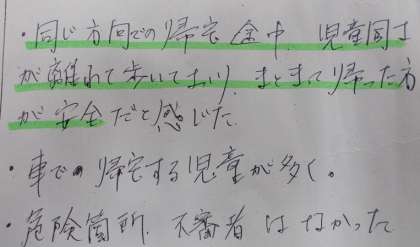 ・同じ方向での帰宅途中、児童同士
が離れて歩いており、まとまって帰った方
が安全だと感じた
・車での帰宅する児童が多く。
・危険箇所、不審者はなかった